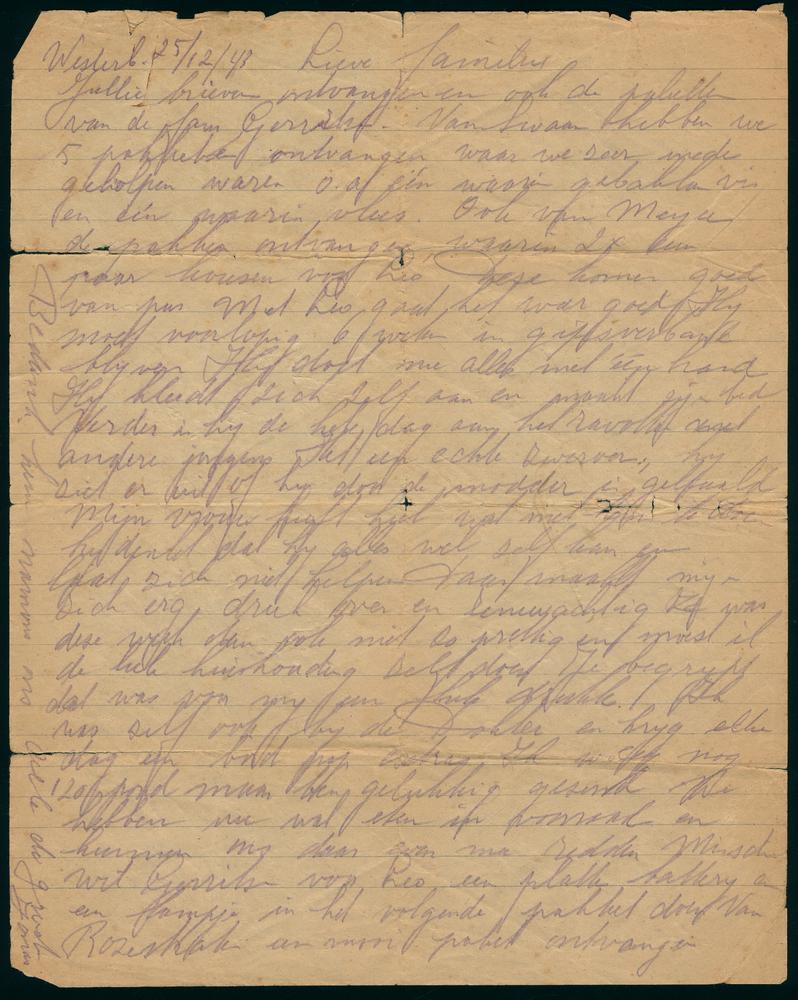 Westerb. 25/12/43 Lieve familie
Jullie brieven ontvangen en ook de paketten
van de fam Gerritse. Van Swaan hebben we
5 pakketten ontvangen waar we zeer mede
geholpen waren o.a. één waarin gebakken vis
en één waarin vlees. Ook van Meyer
de pakken ontvangen, waarin 2x een
paar kousen voor Leo Deze komen goed
van pas Met Leo gaat het weer goed Hij
moet voorlopig 6 weken in gipsverband
blijven Hij doet nu alles met één hand
Hij kleedt zich zelf aan en maakt zijn bed
Verder is hij de hele dag aan het ravotten met
andere jongens een echte zwerver, hij
ziet er uit of hij door de modder is gehaald
Mijn vrouw heeft heel wat met hem te doen
hij denkt dat hij alles wel zelf kan en
laat zich niet helpen Daar maakt mijn
zich erg druk over en zenuwachtig Ze was
deze week dan ook niet zo prettig en moest ik
de hele huishouding zelf doen Je begrijpt
dat was voor mij een Ik
was zelf ook bij de Dokter en krijg elke
dag een bord pap extra Ik weeg nog
120 pond maar ben gelukkig gezond We
hebben nu wat eten in voorraad en
kunnen ons daar mee redden Misschien
wil Gerritse voor Leo een platte battery en
een lampje in het volgende pakket doen Van
Rozeshak een mooi paket ontvangen
Bedank hen namens ons Jullie de groeten